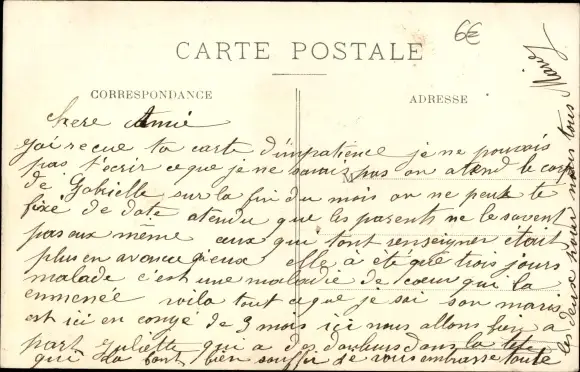 6€
CARTE POSTALE
CORRESPONDANCE
ADRESSE
Chere Amie
j'ai reçue ta carte d'inpatience je ne pouvais
pas t'ecrir ce que je ne savais pas on atend le corp
de Gabrielle sur la fin du mois on ne peut te
fixé de date atendu que les parents ne le savent
pas aux même ceux qui tout renseigner était
plus en avance qu'eux elle a été que trois jours
malade c'est une maladie de cœur qui la
enmenée voila tout ce que je sai son maris
est ici en congé de 3 mois ici nous allons bien a
part Juliette qui a des douleurs dans la tete
qui la font bien souffrir je vous embrasse toute
les deux pour nous tous Marie